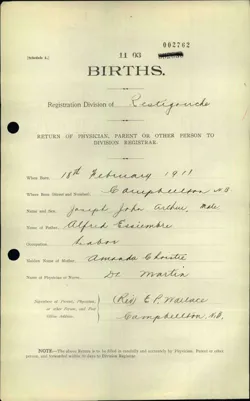 002762
[Schedule A.]
11 63
BIRTHS.
Registration Division of Restigouche
RETURN OF PHYSICIAN, PARENT OR OTHER PERSON TO
DIVISION REGISTRAR.
When Born 18th February 1911
Where Born (Street and Number) Campbellton N.B.
Name and Sex Joseph John Arthur, Male
Name of Father Alfred Essiembre
Occupation Labor
Maiden Name of Mother Amanda Christie
Name of Physician or Nurse Dr Martin
Signature of Parent, Physician,
or other Person, and Post
Office Address
(Rev) E P Wallace
Campbellton, N.B.
NOTE.—The above Return is to be filled in carefully and accurately by Physician, Parent or other
person, and forwarded within 30 days to Division Registrar.